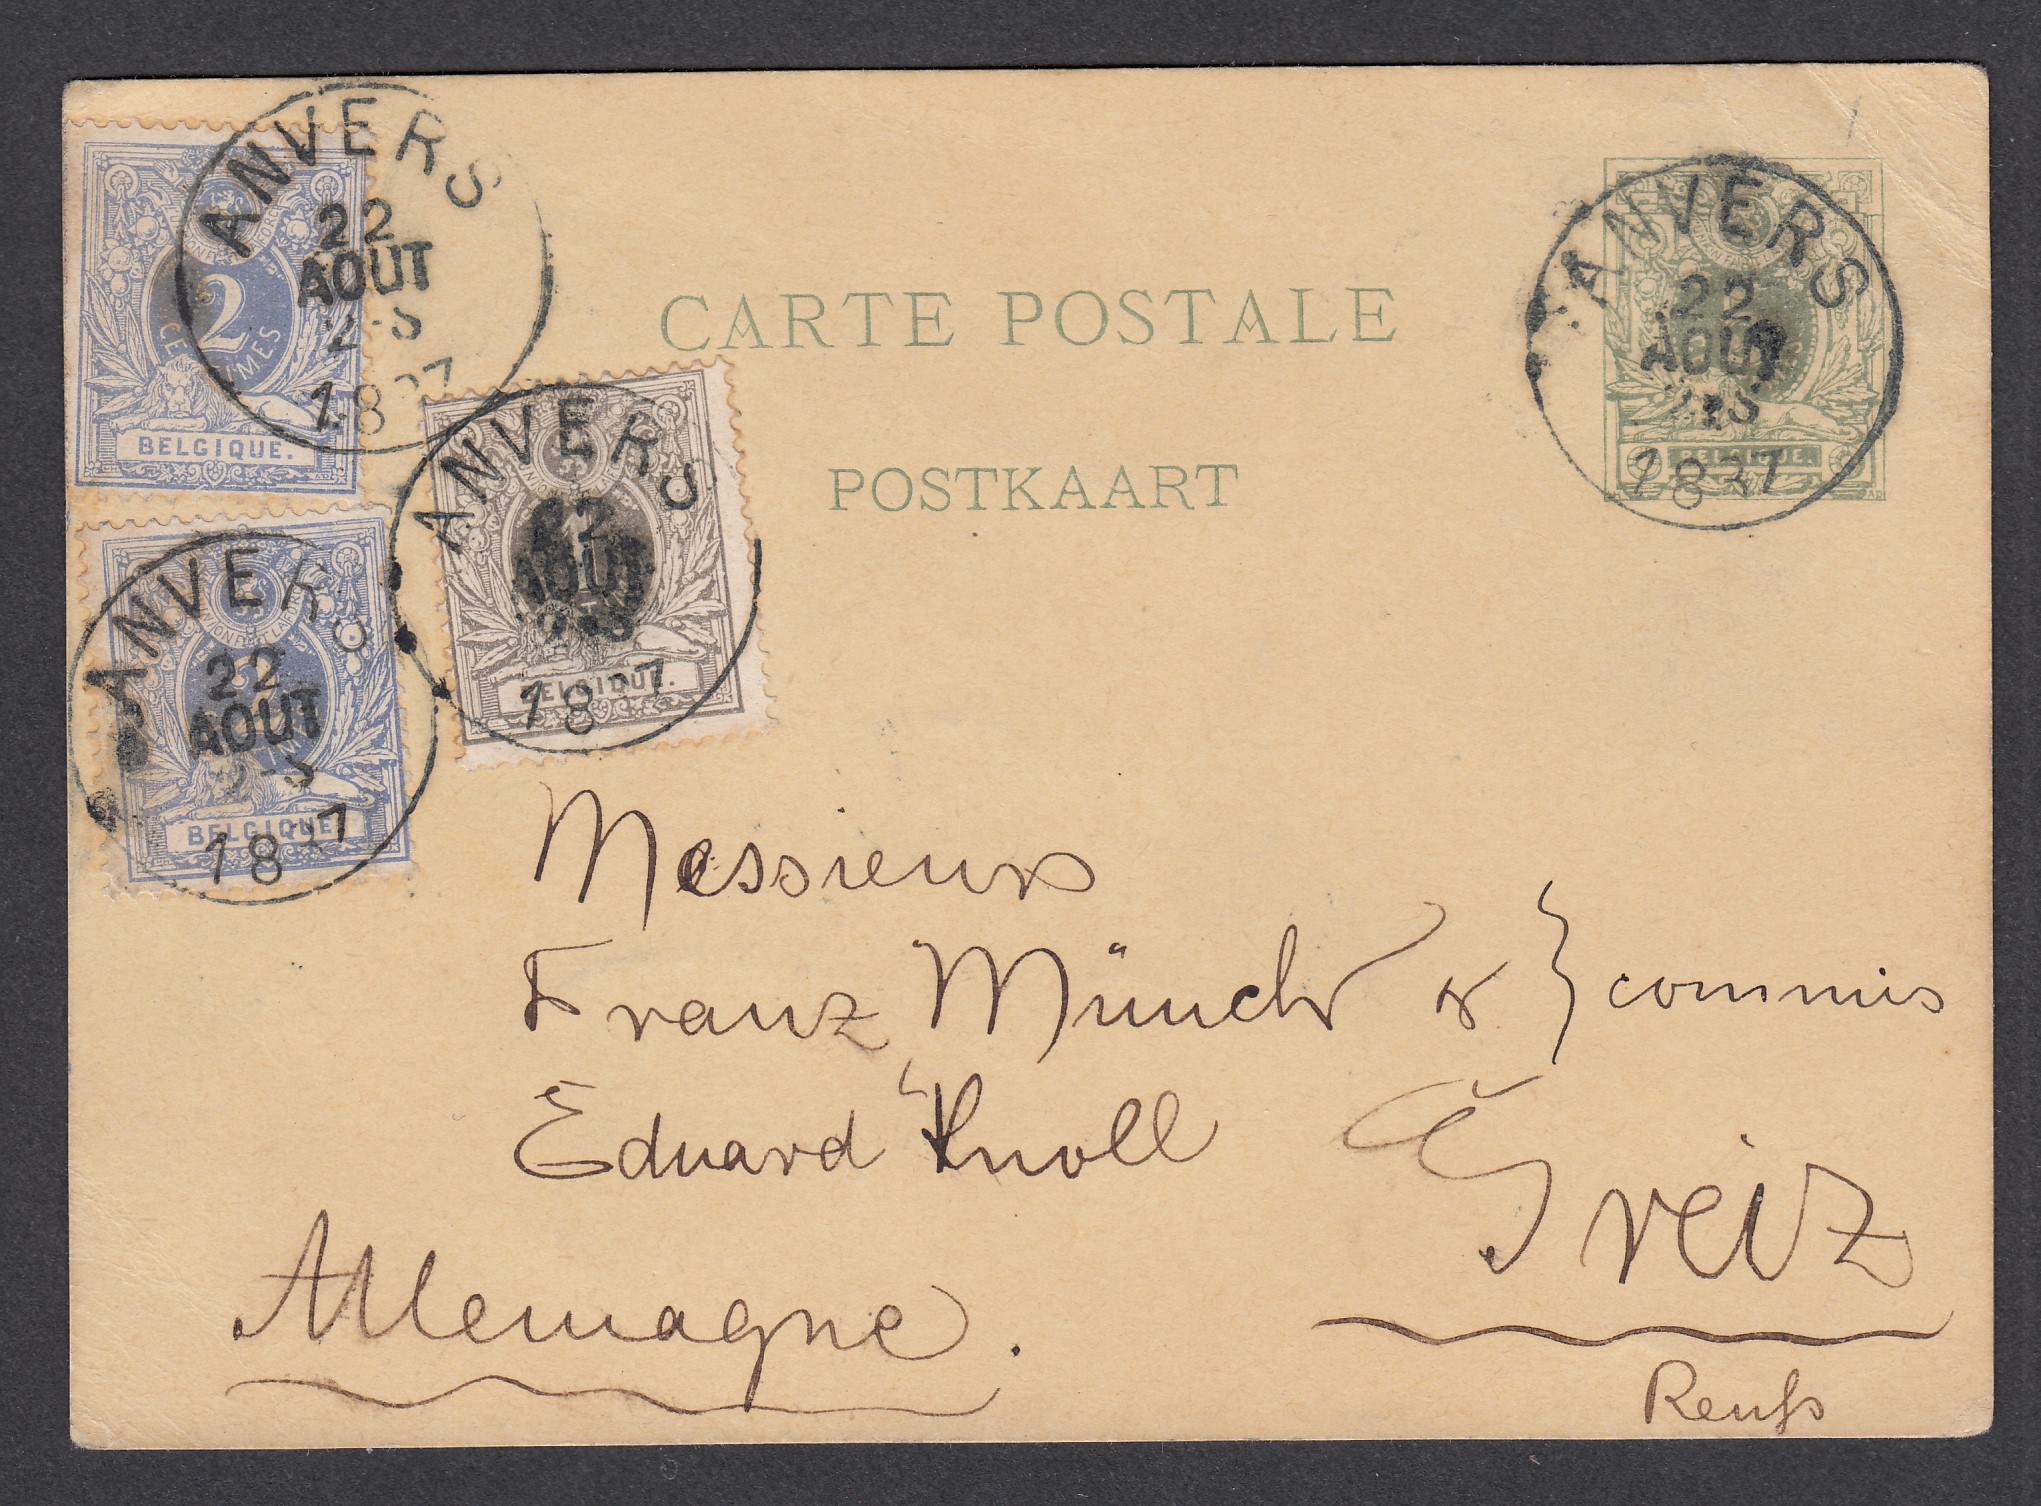 ANVERS
22
AOUT
2-S
1887
2
CENTIMES
BELGIQUE.
ANVERS
22
AOUT
2-S
1887
BELGIQUE.
ANVERS
22
AOUT
1887
BELGIQUE.
CARTE POSTALE
POSTKAART
ANVERS
22
AOUT
1887
BELGIQUE.
Messieurs
Franz Münch & } commis
Eduard Knoll
Greiz
Allemagne.
Reuſs